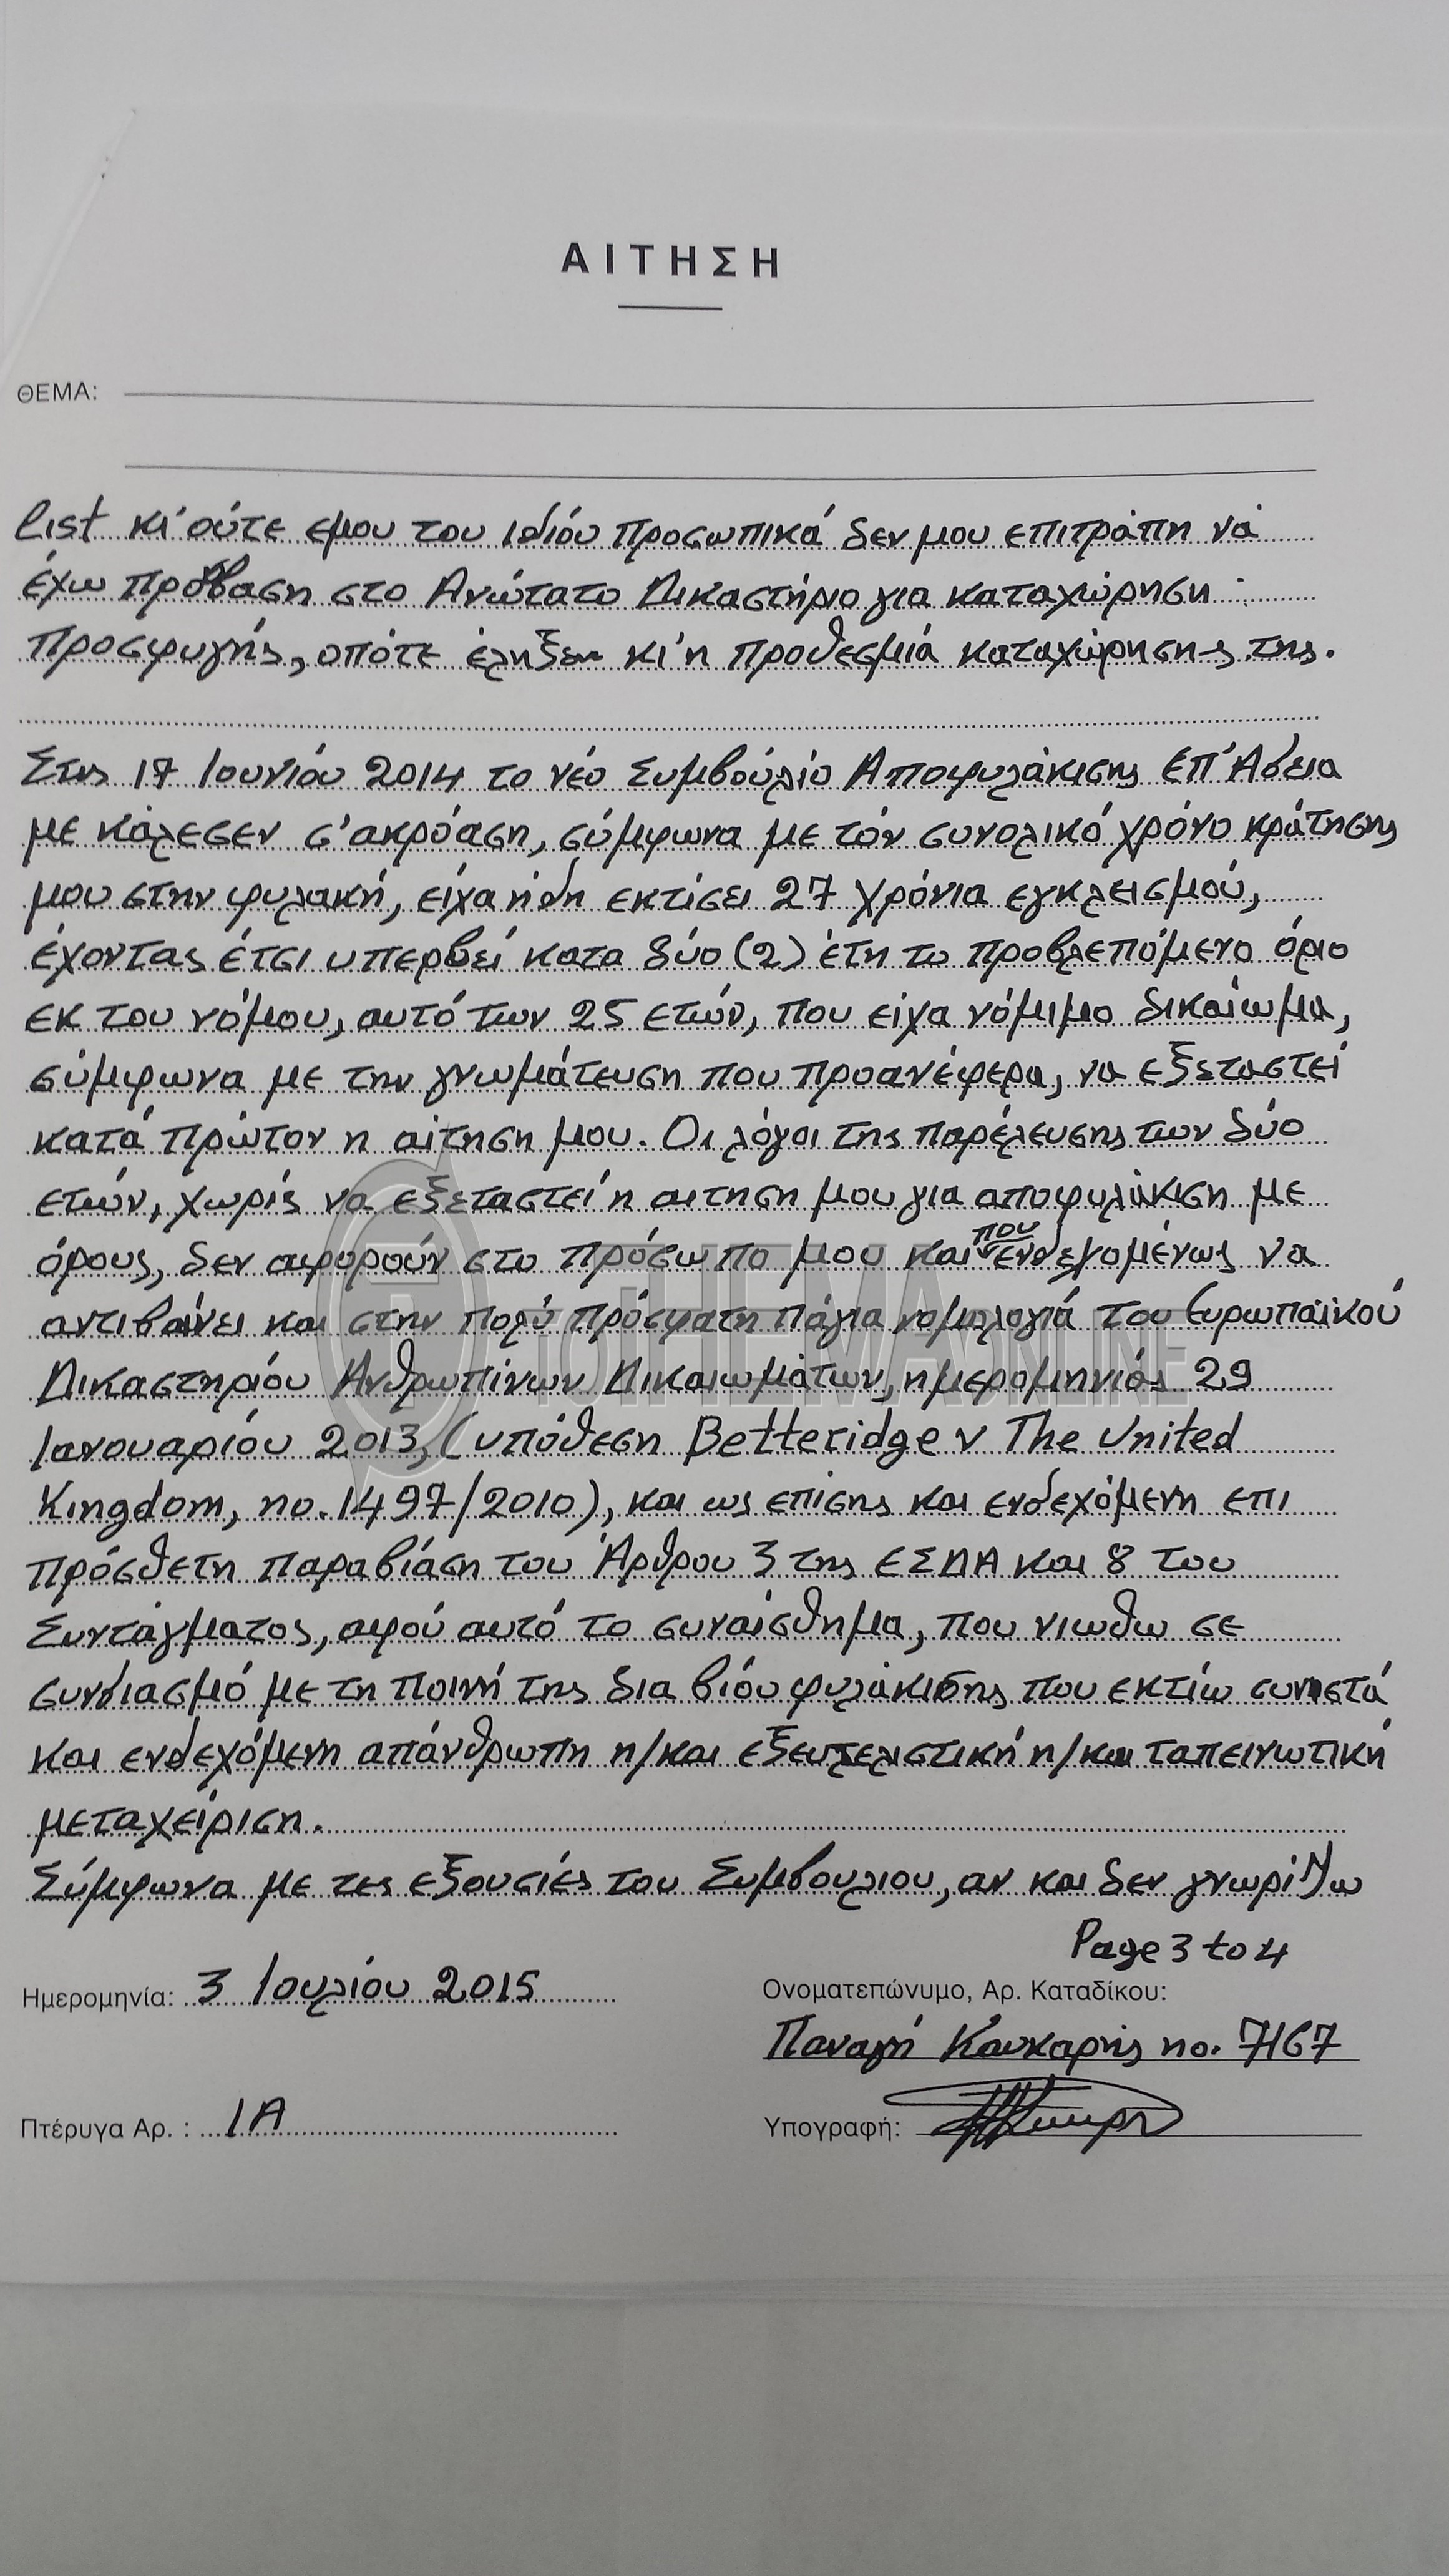 ΑΙΤΗΣΗ
ΘΕΜΑ:
list κι' ούτε εμου του ιδιόυ προσωπικά δεν μου επιτράπη νά
έχω πρόσβαση στο Ανώτατο Δικαστήριο για καταχώρηση
προσφυγής, οπότε έληξεν κι' η προθεσμιά καταχώρησης της.
Στις 17 Ιουνιόυ 2014 το νέο Συμβούλιο Αποφυλάκισης Επ' Αδεια
με κάλεσεν σ' ακρόαση, σύμφωνα με τόν συνολικό χρόνο κράτησης
μου στην φυλακή, είχα ήδη εκτίσει 27 χρόνια εγκλεισμού,
έχοντας έτσι υπερβεί κατα δύο (2) έτη το προβλεπόμενο όριο
εκ του νόμου, αυτό των 25 ετών, που είχα νόμιμο δικαίωμα,
σύμφωνα με την γνωμάτευση που προανέφερα, να εξεταστεί
κατά πρώτον η αίτηση μου. Οι λόγοι της παρέλευσης των δύο
ετών, χωρίς να εξεταστεί η αιτηση μου για αποφυλάκιση με
όρους, δεν αφορούν στο πρόσωπο μου και που ενδεχομένως να
αντιβαίνει και στην πολύ πρόσφατη πάγια νομολογιά του Ευρωπαϊκού
Δικαστηριόυ Ανθρωπίνων Δικαιωμάτων, ημερομηνιάς 29
Ιανουαριόυ 2013, (υπόθεση Betteridge v The United
Kingdom, no. 1497/2010), και ως επίσης και ενδεχόμενη επι
πρόσθετη παραβίαση του Άρθρου 3 της ΕΣΔΑ και 8 του
Συντάγματος, αφού αυτό το συναίσθημα, που νιωθω σε
συνδιασμό με τη ποινή της δια βίου φυλάκισης που εκτίω συνιστά
και ενδεχόμενη απάνθρωπη η/και εξευτελιστική η/και ταπεινωτική
μεταχείριση.
Σύμφωνα με τες εξουσίες του Συμβουλιου, αν και δεν γνωρίζω
Page 3 to 4
Ημερομηνία: 3 Ιουλίου 2015
Ονοματεπώνυμο, Αρ. Καταδίκου:
Παναγή Καυκαρής no. 7167
Πτέρυγα Αρ. : 1A
Υπογραφή:
ΤΟ ΤΗΕΜΑ ONLINE